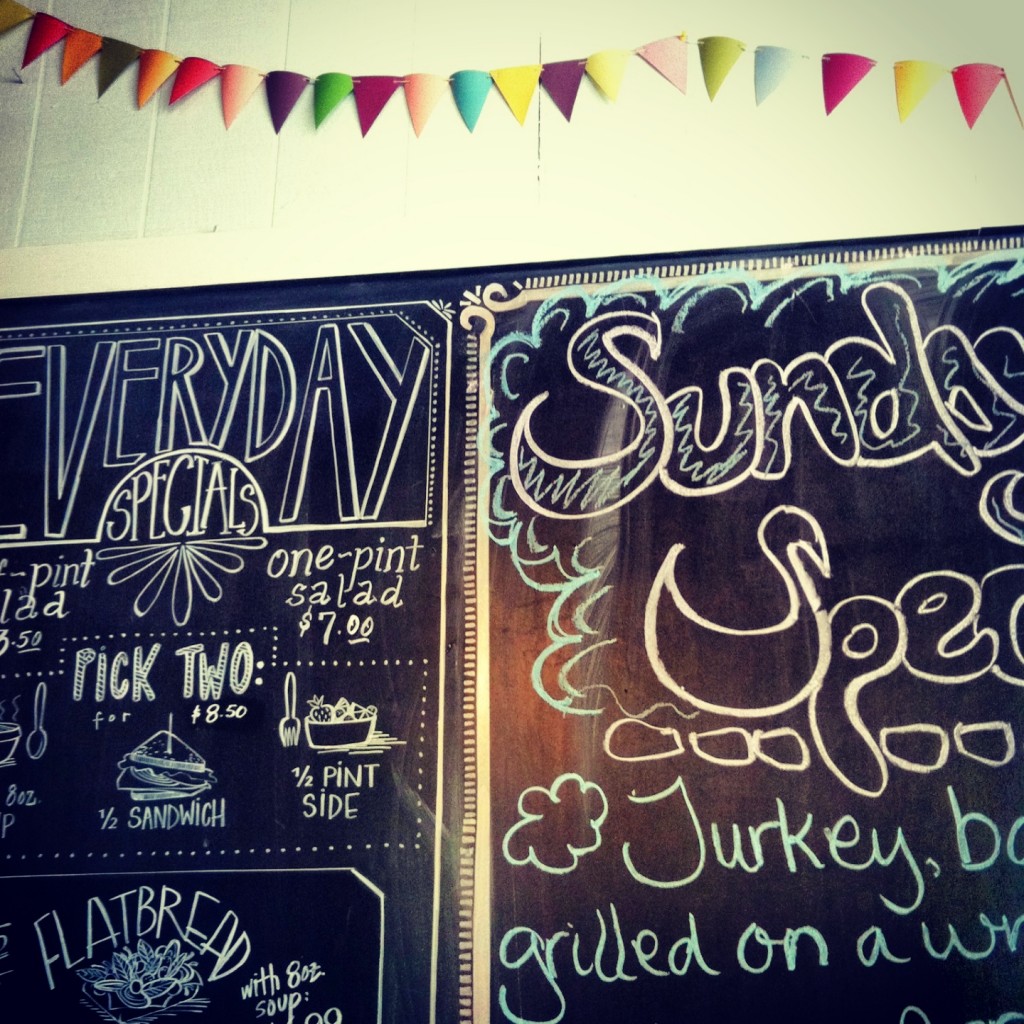 EVERYDAY
SPECIALS
-pint
lad
3.50
one-pint
salad
$7.00
PICK TWO:
for $8.50
8oz.
P
½ SANDWICH
½ PINT
SIDE
FLATBREAD
with 8oz.
soup:
Sunday
Spec
Turkey, ba
grilled on a wr